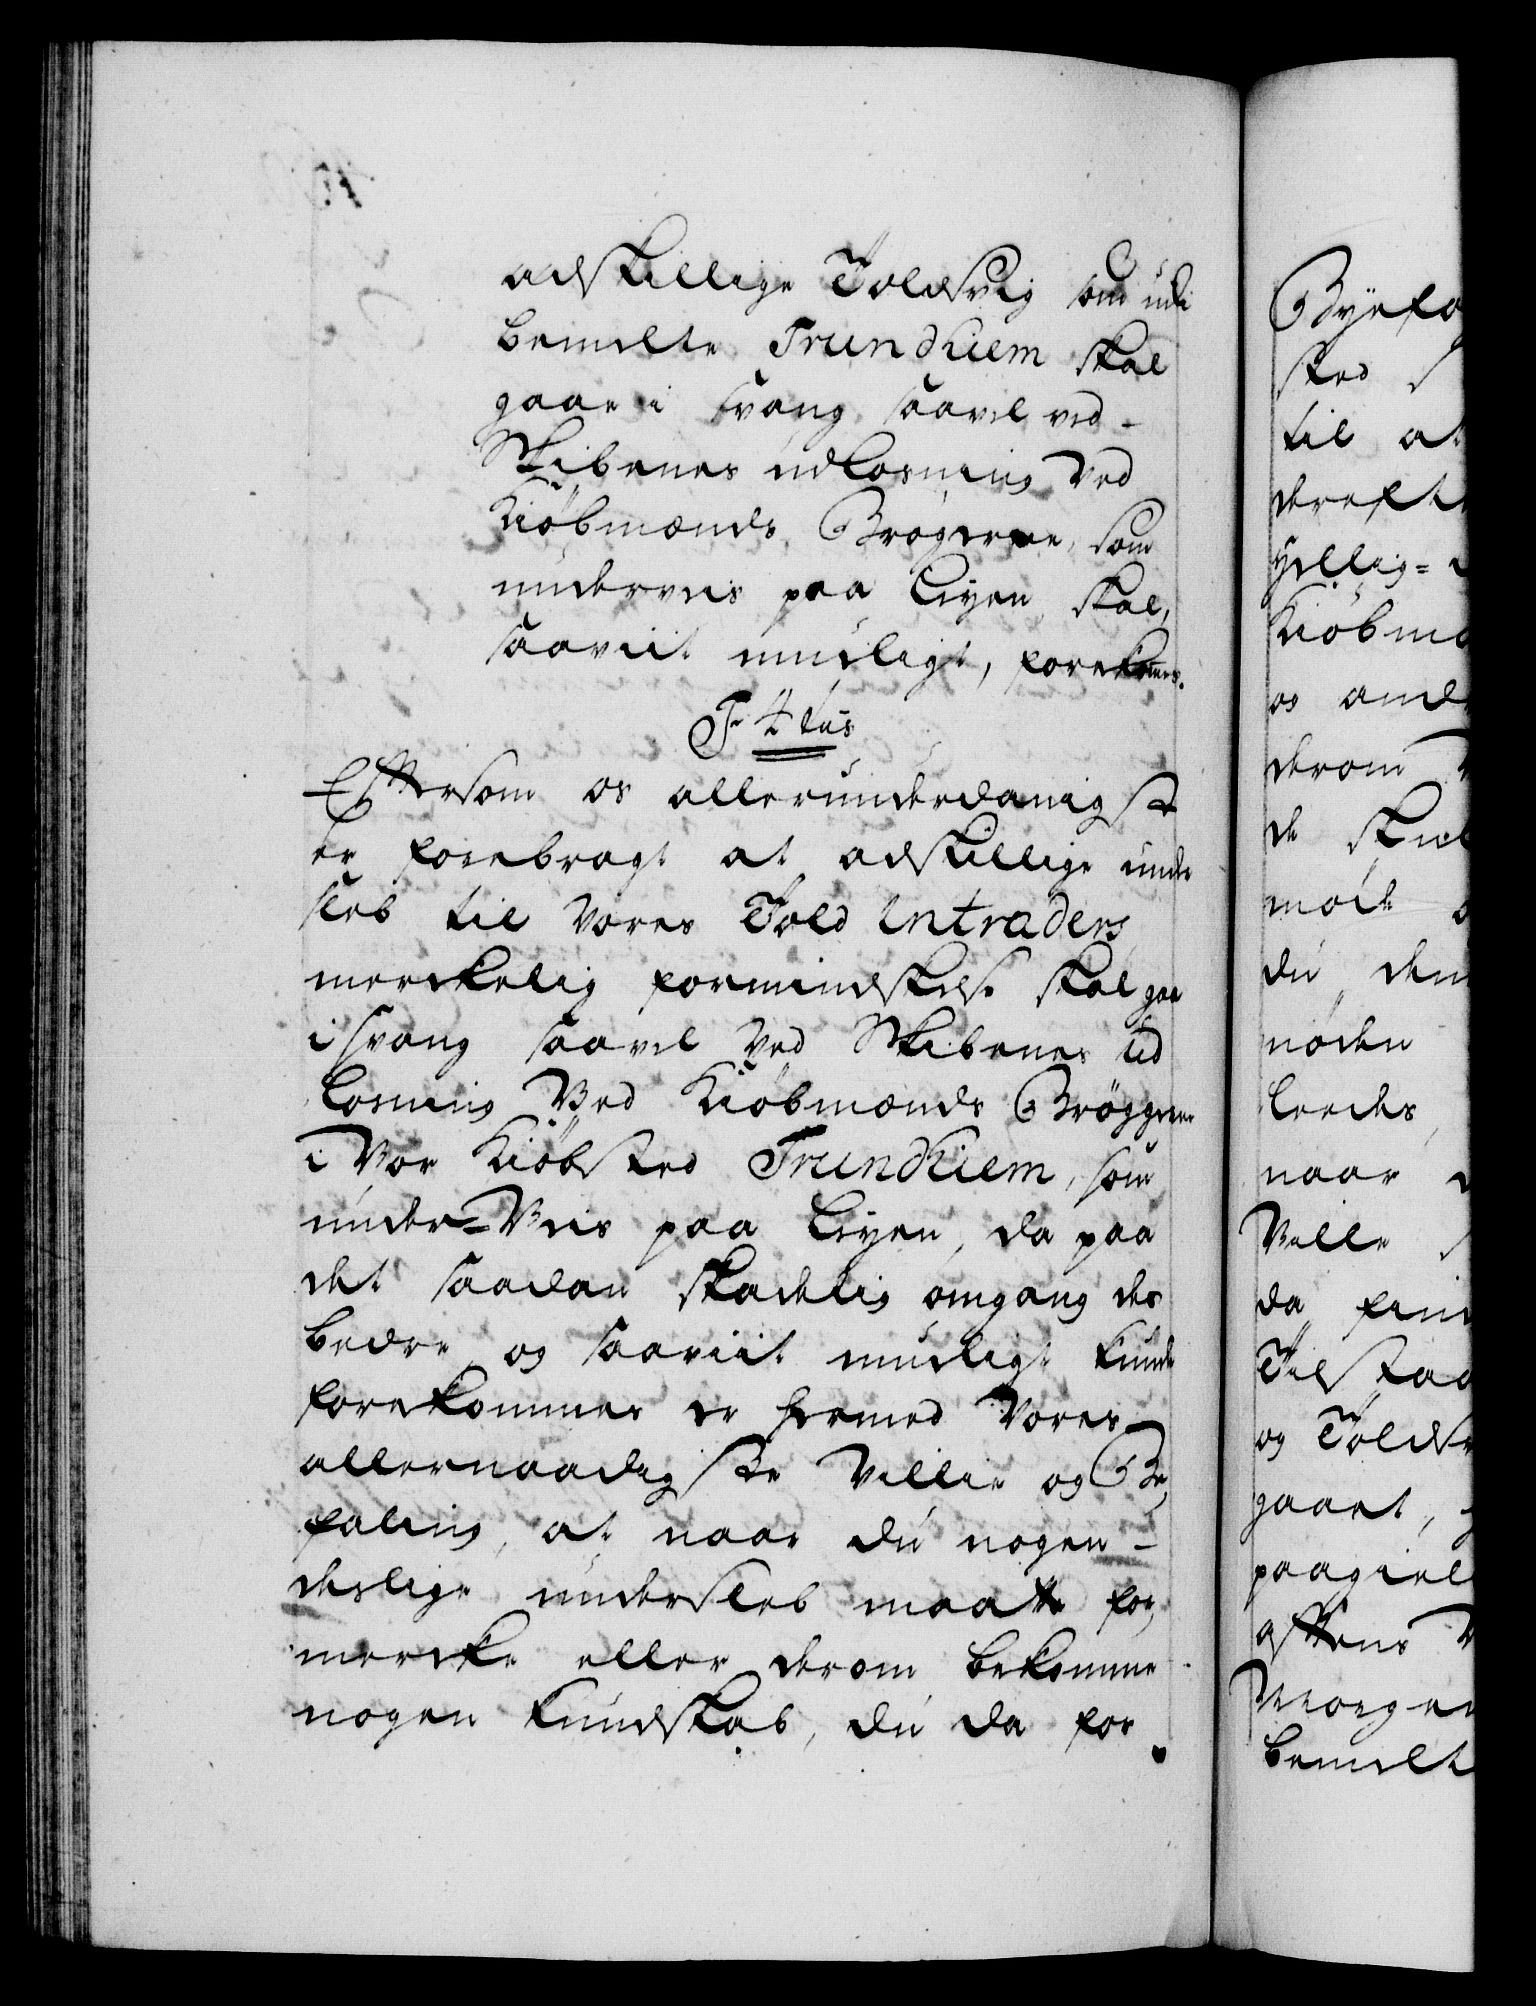 adskillige Toldsvig som udi
bemelte Trundhiem skal
gaae i svang saavel ved
Skibenes udlosning ved
Kiöbmænds Brøgerne, som
underveis paa Leyen, skal,
saaviit mueligt, forekommes.
F 4 tus
Eftersom os allerunderdanigst
er forebragt at adskillige under
sleb til Vores Told Intraders
merckelig formindskelse skal gaa
i svang saavel ved Skibenes ud
losning Ved Kiöbmænds Brøggerne
i Vor Kiöbsted Trundhiem, som
under-Veis paa Leyen, da paa
det saadan skadelig omgang des
bedre og saaviit mueligt kunde
forekommes er hermed Vores
allernaadigste Villie og Be,
faling, at naar du nogen
deslige undersleb maatte for,
mercke eller derom bekomme
nogen kundskab, du da for
Byefo
sted
til at
dereft
hellig=
Kiöbmæ
os and
derom
de skul
möde
du dem
nöden
leedes,
naar
Ville
da find
Tilstaa
og Tolder
gaaet,
paagiel
aftens
Morgen
bemelt